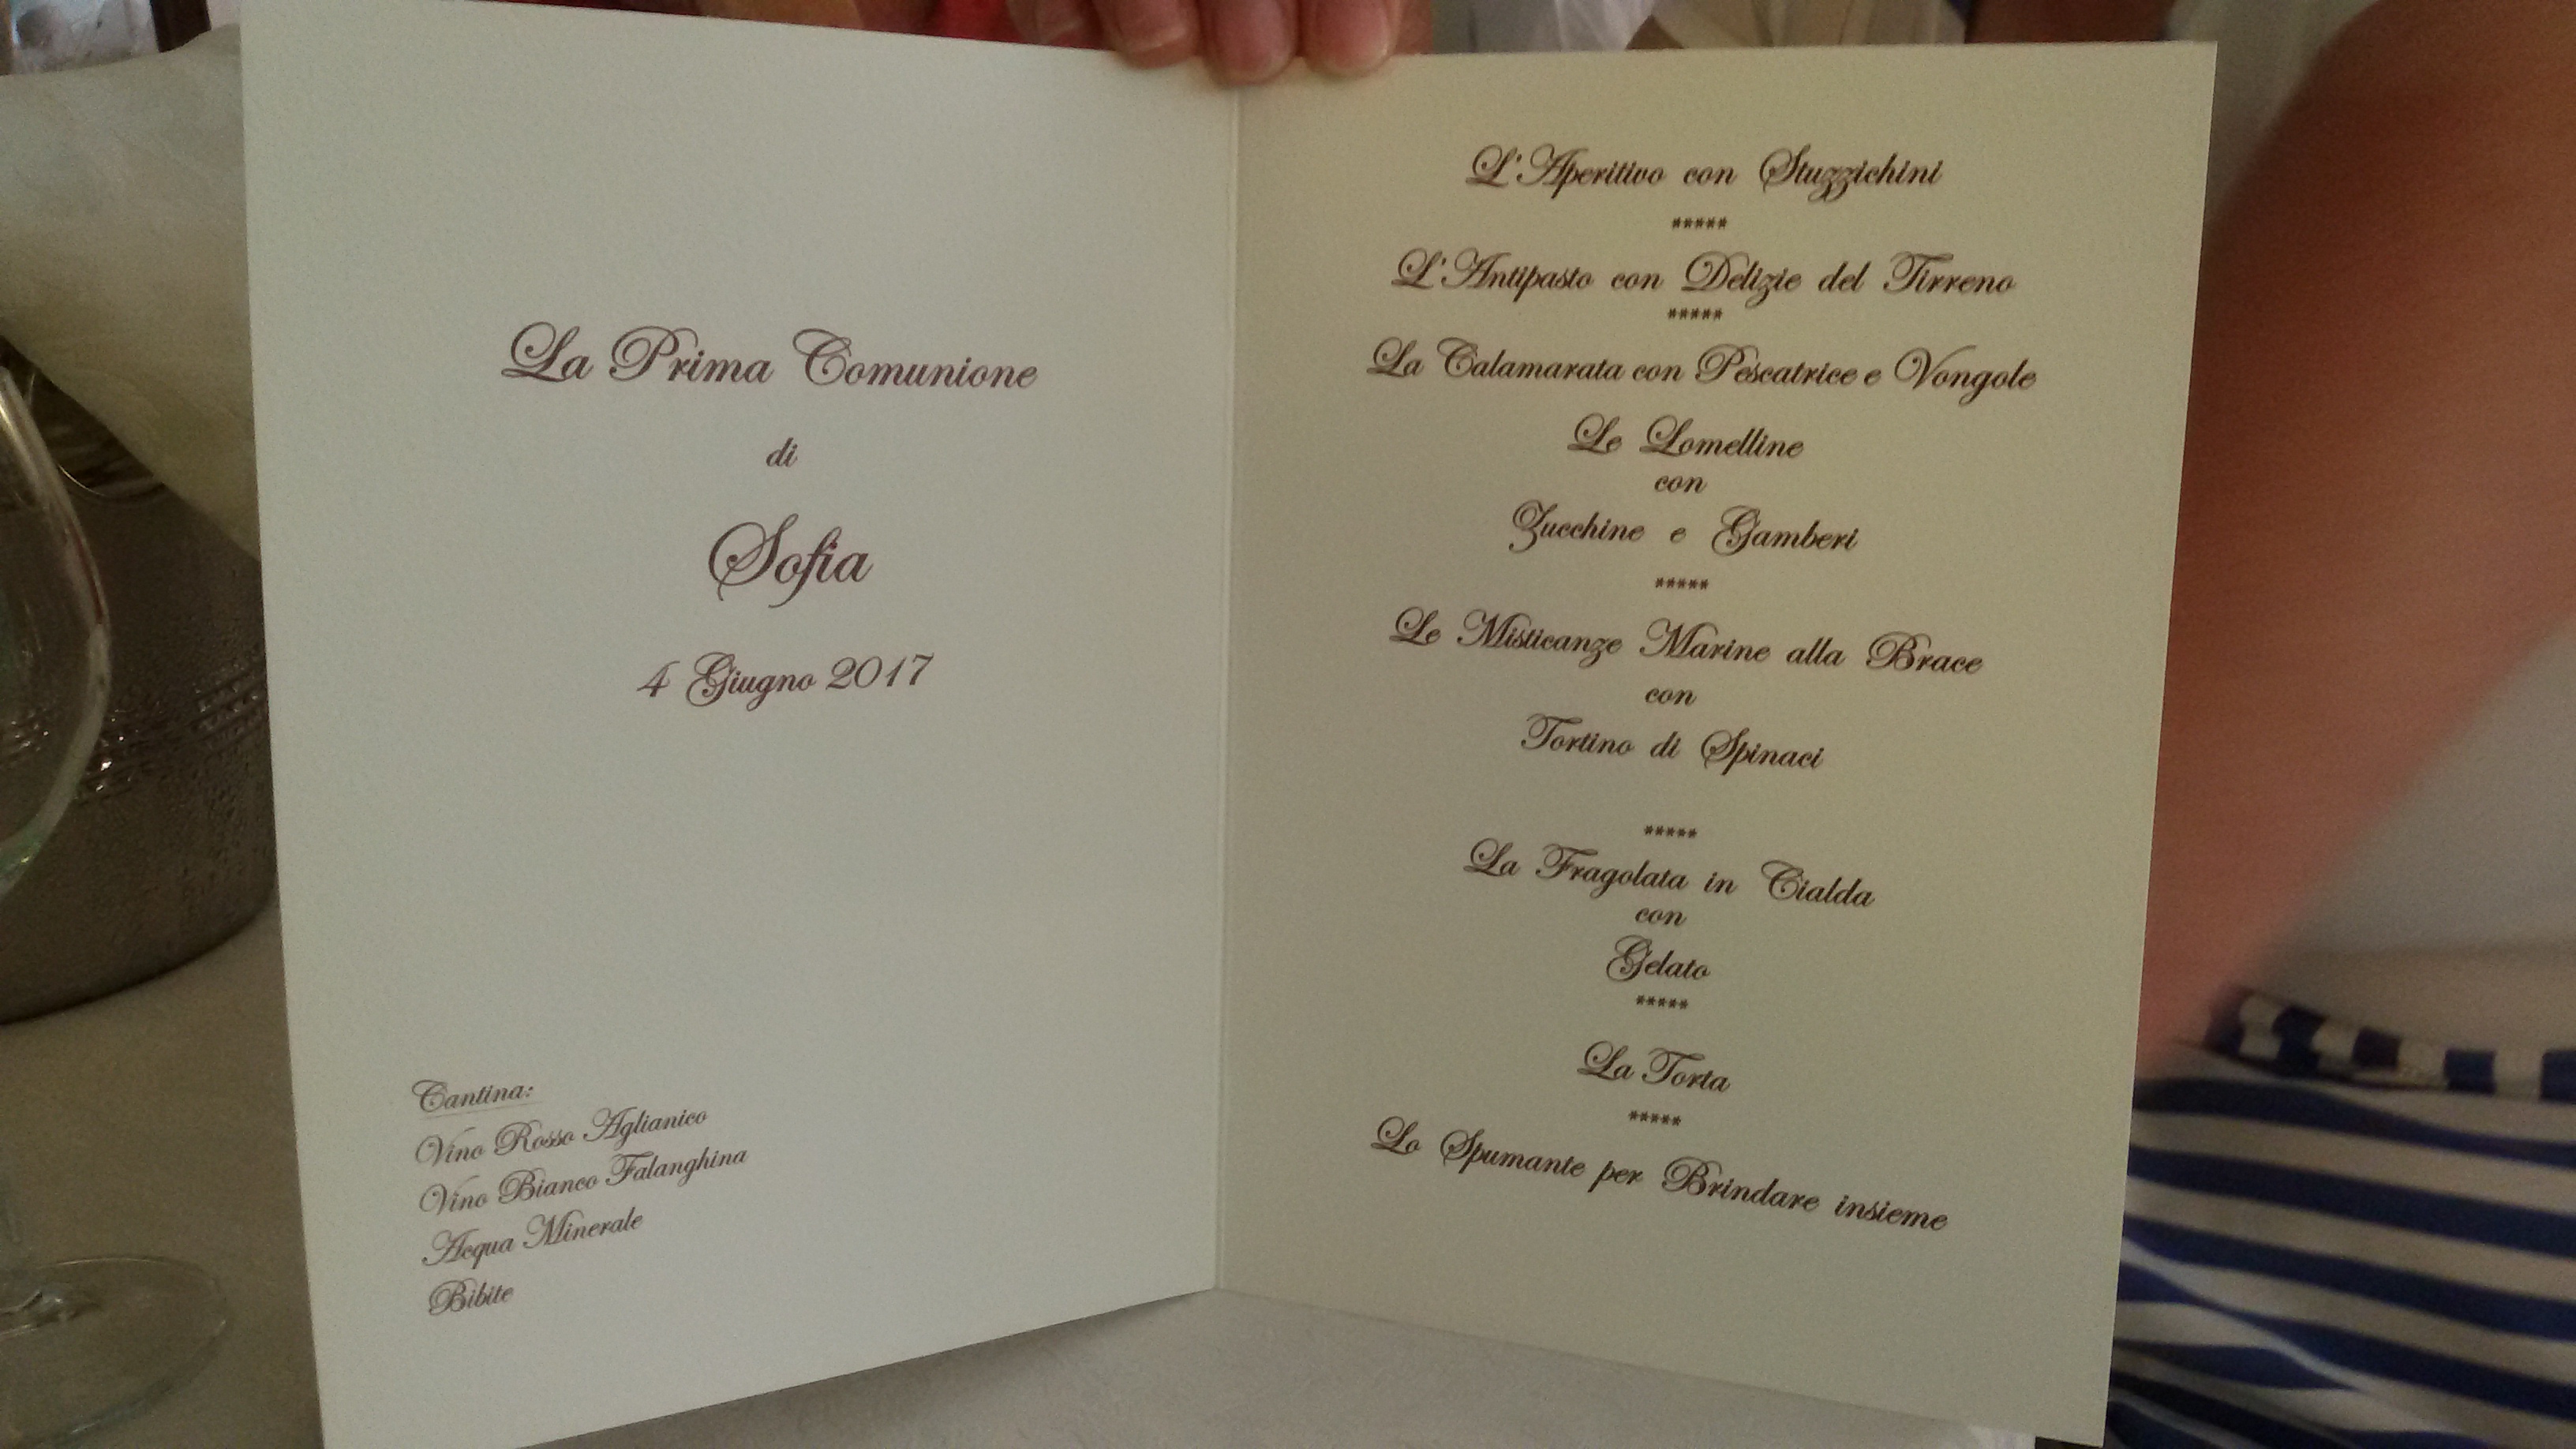 La Prima Comunione
di
Sofia
4 Giugno 2017
Cantina:
Vino Rosso Aglianico
Vino Bianco Falanghina
Acqua Minerale
Bibite
L'Aperitivo con Stuzzichini
*****
L'Antipasto con Delizie del Tirreno
*****
La Calamarata con Pescatrice e Vongole
Le Lomelline
con
Zucchine e Gamberi
*****
Le Misticanze Marine alla Brace
con
Tortino di Spinaci
*****
La Fragolata in Cialda
con
Gelato
*****
La Torta
*****
Lo Spumante per Brindare insieme